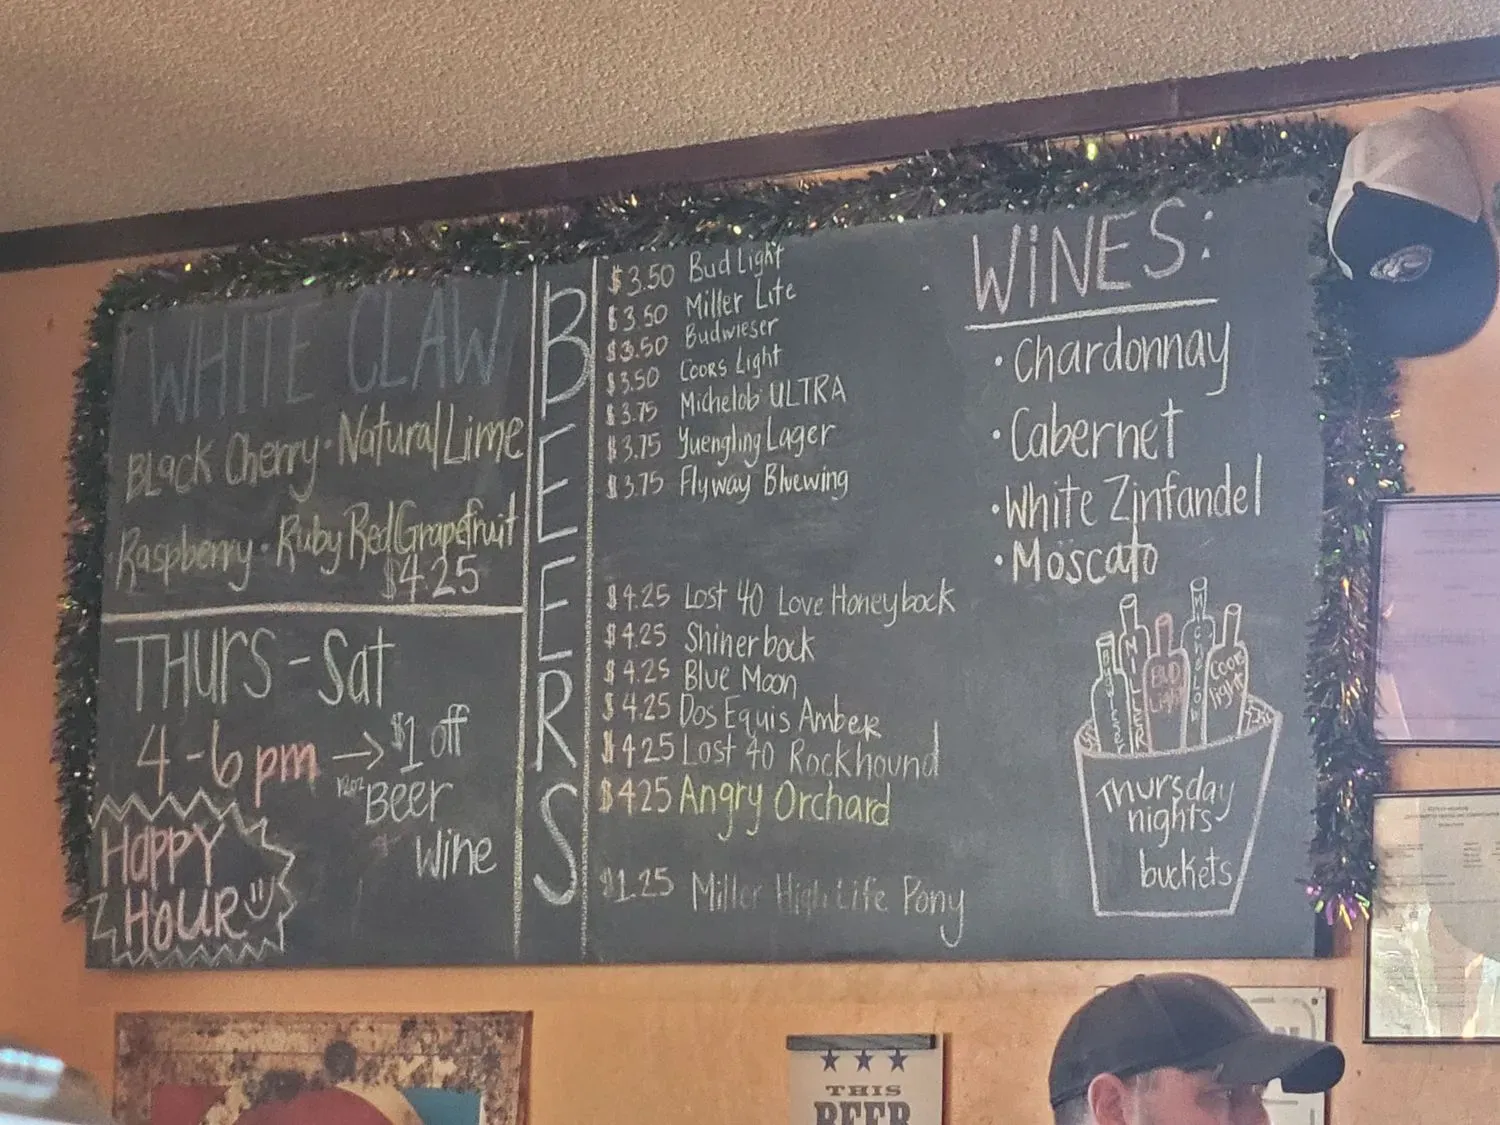 WHITE CLAW
Black Cherry · Natural Lime
Raspberry · Ruby Red Grapefruit
$4.25
THURS - Sat
4-6pm → $1 off
12oz Beer
+ Wine
HAPPY
HOUR
BEERS
$3.50 Bud Light
$3.50 Miller Lite
$3.50 Budwieser
$3.50 Coors Light
$3.75 Michelob ULTRA
$3.75 Yuengling Lager
$3.75 Flyway Bluewing
$4.25 Lost 40 Love Honeybock
$4.25 Shiner bock
$4.25 Blue Moon
$4.25 Dos Equis Amber
$4.25 Lost 40 Rockhound
$4.25 Angry Orchard
$1.25 Miller High Life Pony
WINES:
· Chardonnay
· Cabernet
· White Zinfandel
· Moscato
MILLER
BUD
Light
COORS
light
Thursday
nights
buckets
THIS
BEER